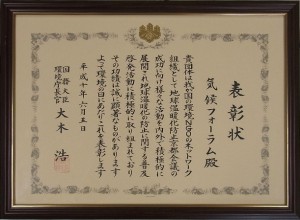 表彰状
気候フォーラム殿
貴団体は我が国の環境NGOのネットワーク
組織として地球温暖化防止京都会議の
成功に向け様々な活動を内外で積極的に
展開され地球温暖化の防止に関する普及
啓発活動に積極的に取り組まれており
その功績は誠に顕著なものがあります
よって環境の日にあたりこれを表彰します
平成十年六月五日
国務大臣
環境庁長官 大木 浩